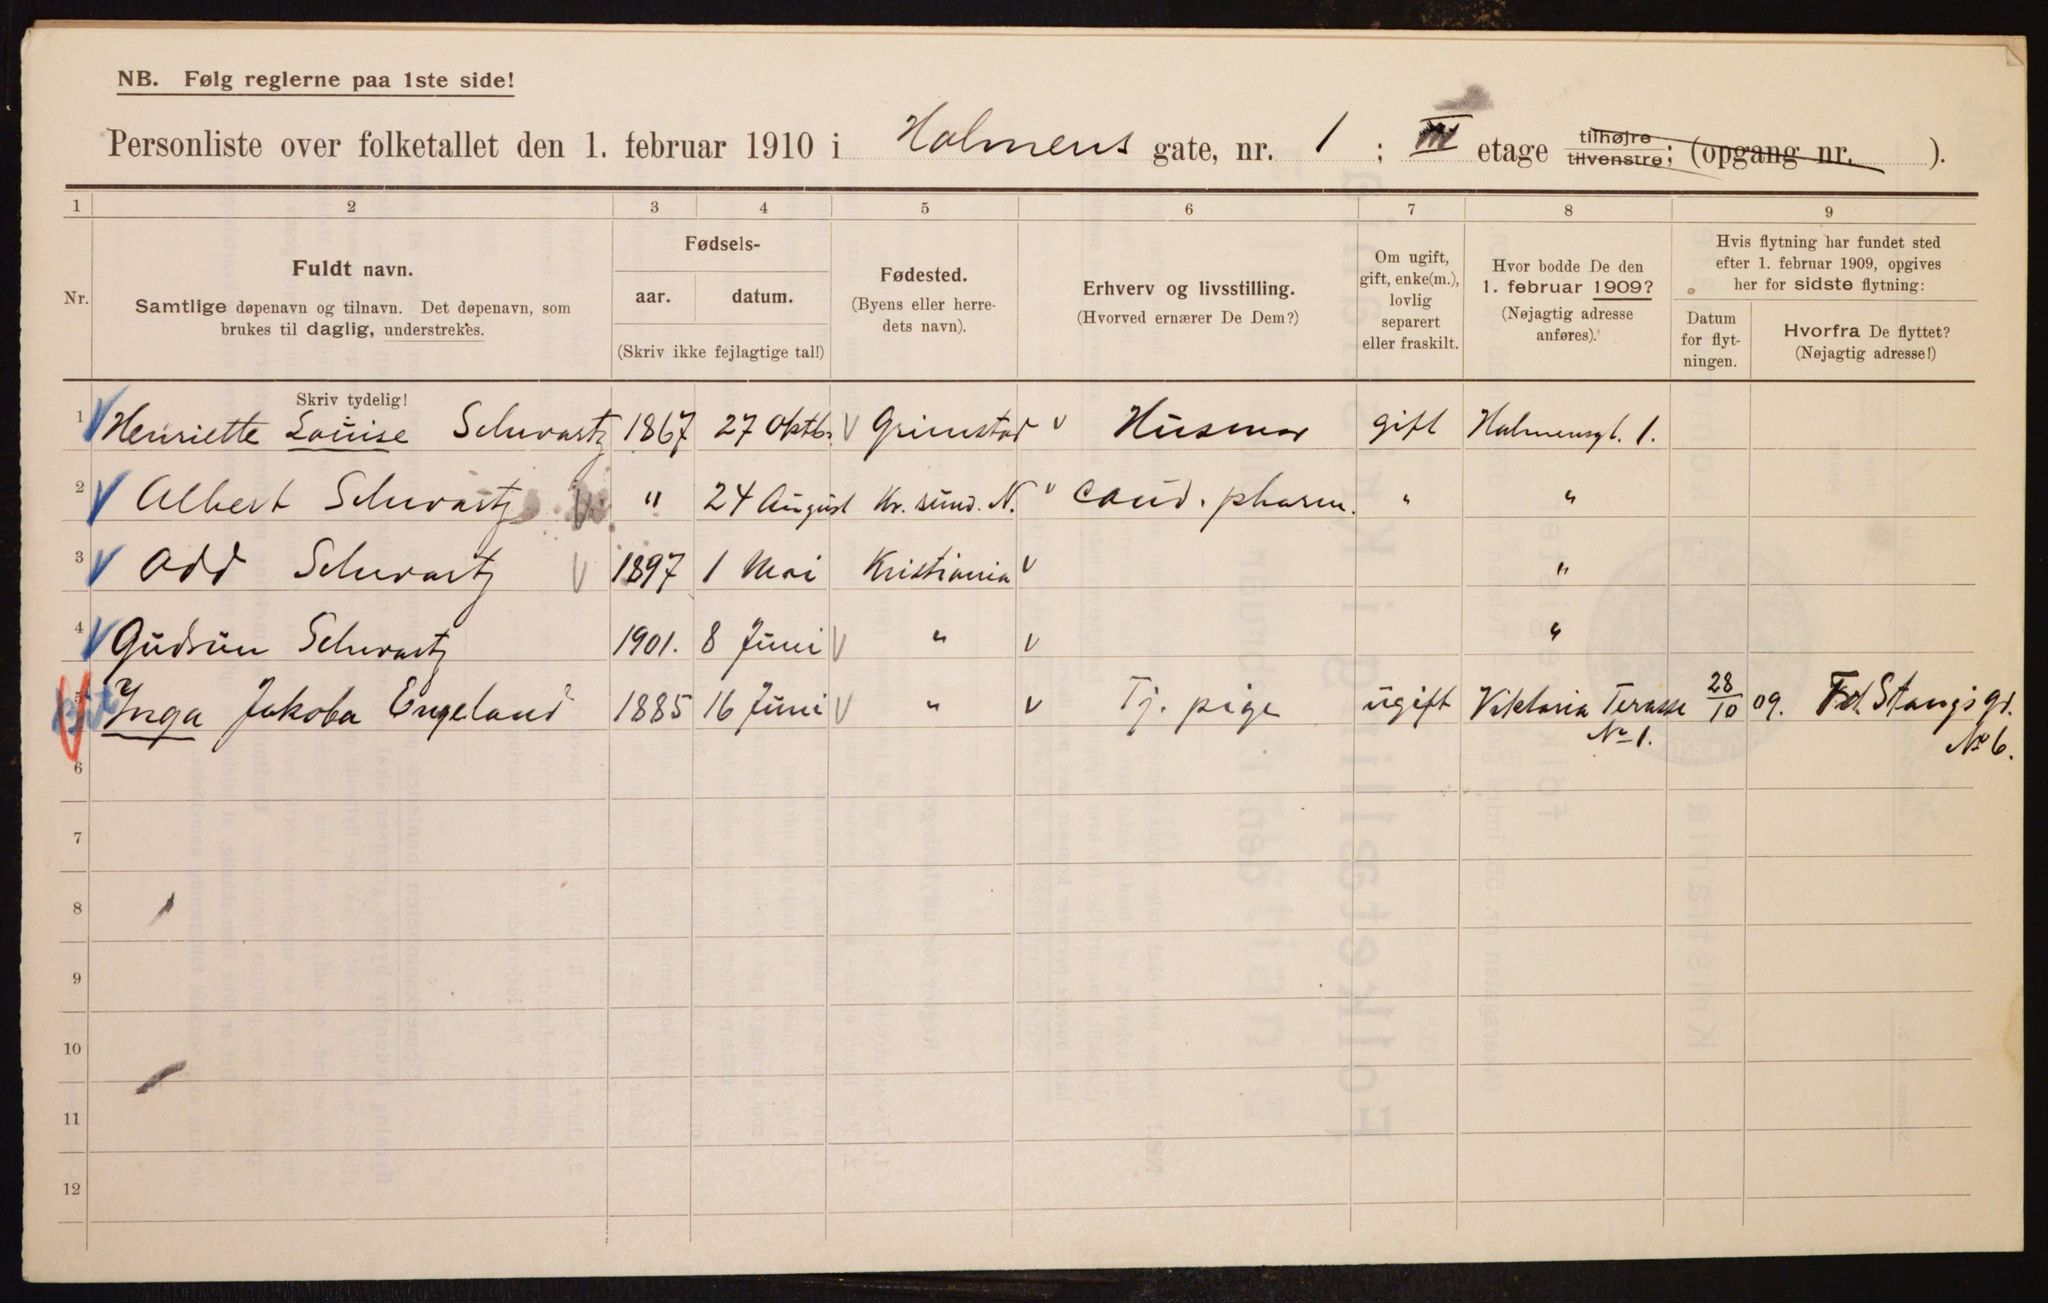 NB. Følg reglerne paa 1ste side!
Personliste over folketallet den 1. februar 1910 i Holmens gate, nr. 1; III etage tilhøjre tilvenstre; (opgang nr. ).
1 2 3 4 5 6 7 8 9
Nr.
Fuldt navn.
Samtlige døpenavn og tilnavn. Det døpenavn, som
brukes til daglig, understrekes.
Fødsels-
aar. datum.
(Skriv ikke fejlagtige tal!)
Fødested.
(Byens eller herre-
dets navn).
Erhverv og livsstilling.
(Hvorved ernærer De Dem?)
Om ugift,
gift, enke(m.),
lovlig
separert
eller fraskilt.
Hvor bodde De den
1. februar 1909?
(Nøjagtig adresse
anføres).
Hvis flytning har fundet sted
efter 1. februar 1909, opgives
her for sidste flytning:
Datum
for flyt-
ningen.
Hvorfra De flyttet?
(Nøjagtig adresse!)
Skriv tydelig!
1 Henriette Louise Schwartz 1867 27 Oktbr. Grimstad Husmor gift Holmensgt. 1.
2 Albert Schwartz " 24 August Kr. sund. N. cand. pharm. " "
3 Odd Schwartz 1897 1 Mai Kristiania "
4 Gudrun Schwartz 1901. 8 Juni " "
5 Inga Jakoba Engeland 1885 16 Juni " Tj. pige ugift Viktoria Terasse 28/10 09. Fd. Stangs gd.
No 1. No 6.
6
7
8
9
10
11
12